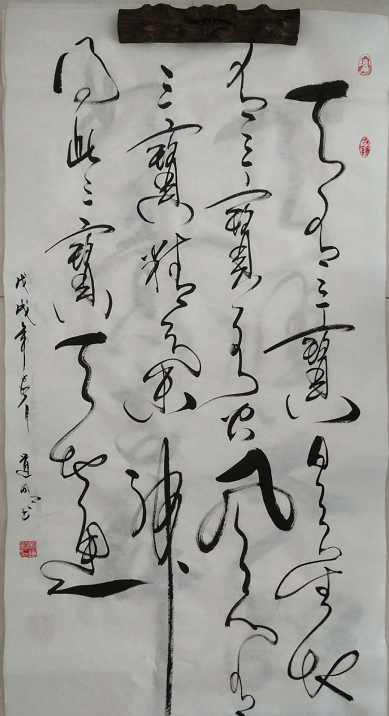 天有三寶日月星地
有三寶水火風人有
三寶精氣神
此三寶天地通
戊戌年 月 道 书